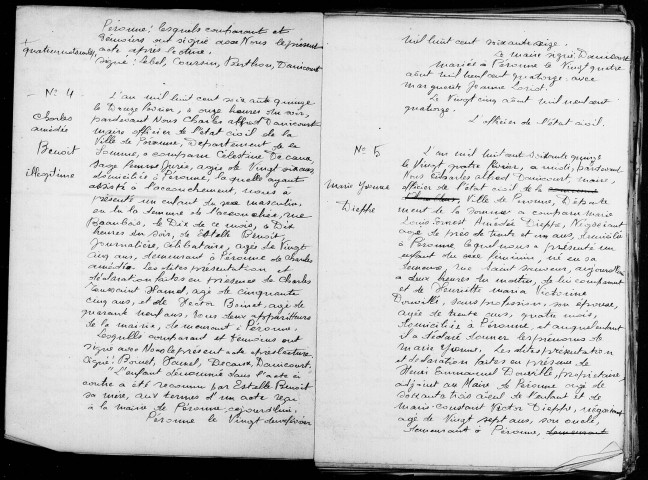 Péronne; lesquels comparant et
témoins ont signé avec Nous le présent
acte après lecture.
Signé: Lebel, Coussin, Berthon, Danicourt
N° 4
Charles
amédée
Benoit
illégitime
L'an mil huit cent soixante quinze
le Douze Janvier, à onze heures du soir,
pardevant Nous Charles alfred Danicourt
maire officier de l'état civil de la
Ville de Péronne, Département de la
Somme, a comparu Célestine Decaux,
Sage femme Jurée, agée de Vingt six ans
domiciliée à Péronne, laquelle ayant
assisté à l'accouchement, nous a
présenté un enfant du sexe masculin
né en la demeure de l'accouchée, rue
Beaubois, le Dix de ce mois, à Dix
heures du soir, de Estelle Benoit,
Journalière, célibataire, agée de Vingt
cinq ans, demeurant à Péronne de Charles
amédée. Les dites présentation et
déclaration faites en présence de Charles
Toussaint Hamel, agé de cinquante
cinq ans, et de Hector Boinet, agé de
quarante neuf ans, tous deux appariteurs
de la mairie, demeurant à Péronne.
Lesquels comparant et témoins ont
signé avec Nous le présent acte après lecture.
Signé: Boinet, Hamel, Decaux, Danicourt.
"L'enfant dénommé dans l'acte ci
contre a été reconnu par Estelle Benoit
sa mère, aux termes d'un acte reçu
à la mairie de Péronne, cejourd'hui.
Péronne le Vingt deux février
mil huit cent soixante seize.
Le maire signé Danicourt
Mariée à Péronne le Vingt quatre
août mil neuf cent quatorze avec
Marguerite Jeanne Loriot.
Le Vingt cinq août mil neuf cent
quatorze.
L'officier de l'état civil.
N° 5
Marie Yvonne
Dieppe
L'an mil huit cent soixante quinze
le Vingt quatre Février, à midi, pardevant
Nous Charles Alfred Danicourt, maire,
officier de l'état civil de la
Ville de Péronne, Départe
ment de la Somme a comparu Marie
Louis Ernest Amédée Dieppe, Négociant
agé de près de trente et un ans, domicilié
à Péronne lequel nous a présenté un
enfant du sexe féminin, né en sa
demeure, rue Saint Sauveur, aujourd'hui
à deux heures du matin, de lui comparant
et de Henriette Maria Victorine
Douville, sans profession, son épouse,
agée de trente ans, quatre mois,
domiciliée à Péronne, et auquel enfant
il a déclaré donner les prénoms de
Marie Yvonne, Les dites présentation
et déclaration faites en présence de
Henri Emmanuel Douville, propriétaire,
adjoint au Maire de Péronne agé de
soixante trois aïeul de l'enfant et de
Marie Constant Victor Dieppe, négociant
agé de Vingt sept ans, son oncle,
demeurant à Péronne, demeurant